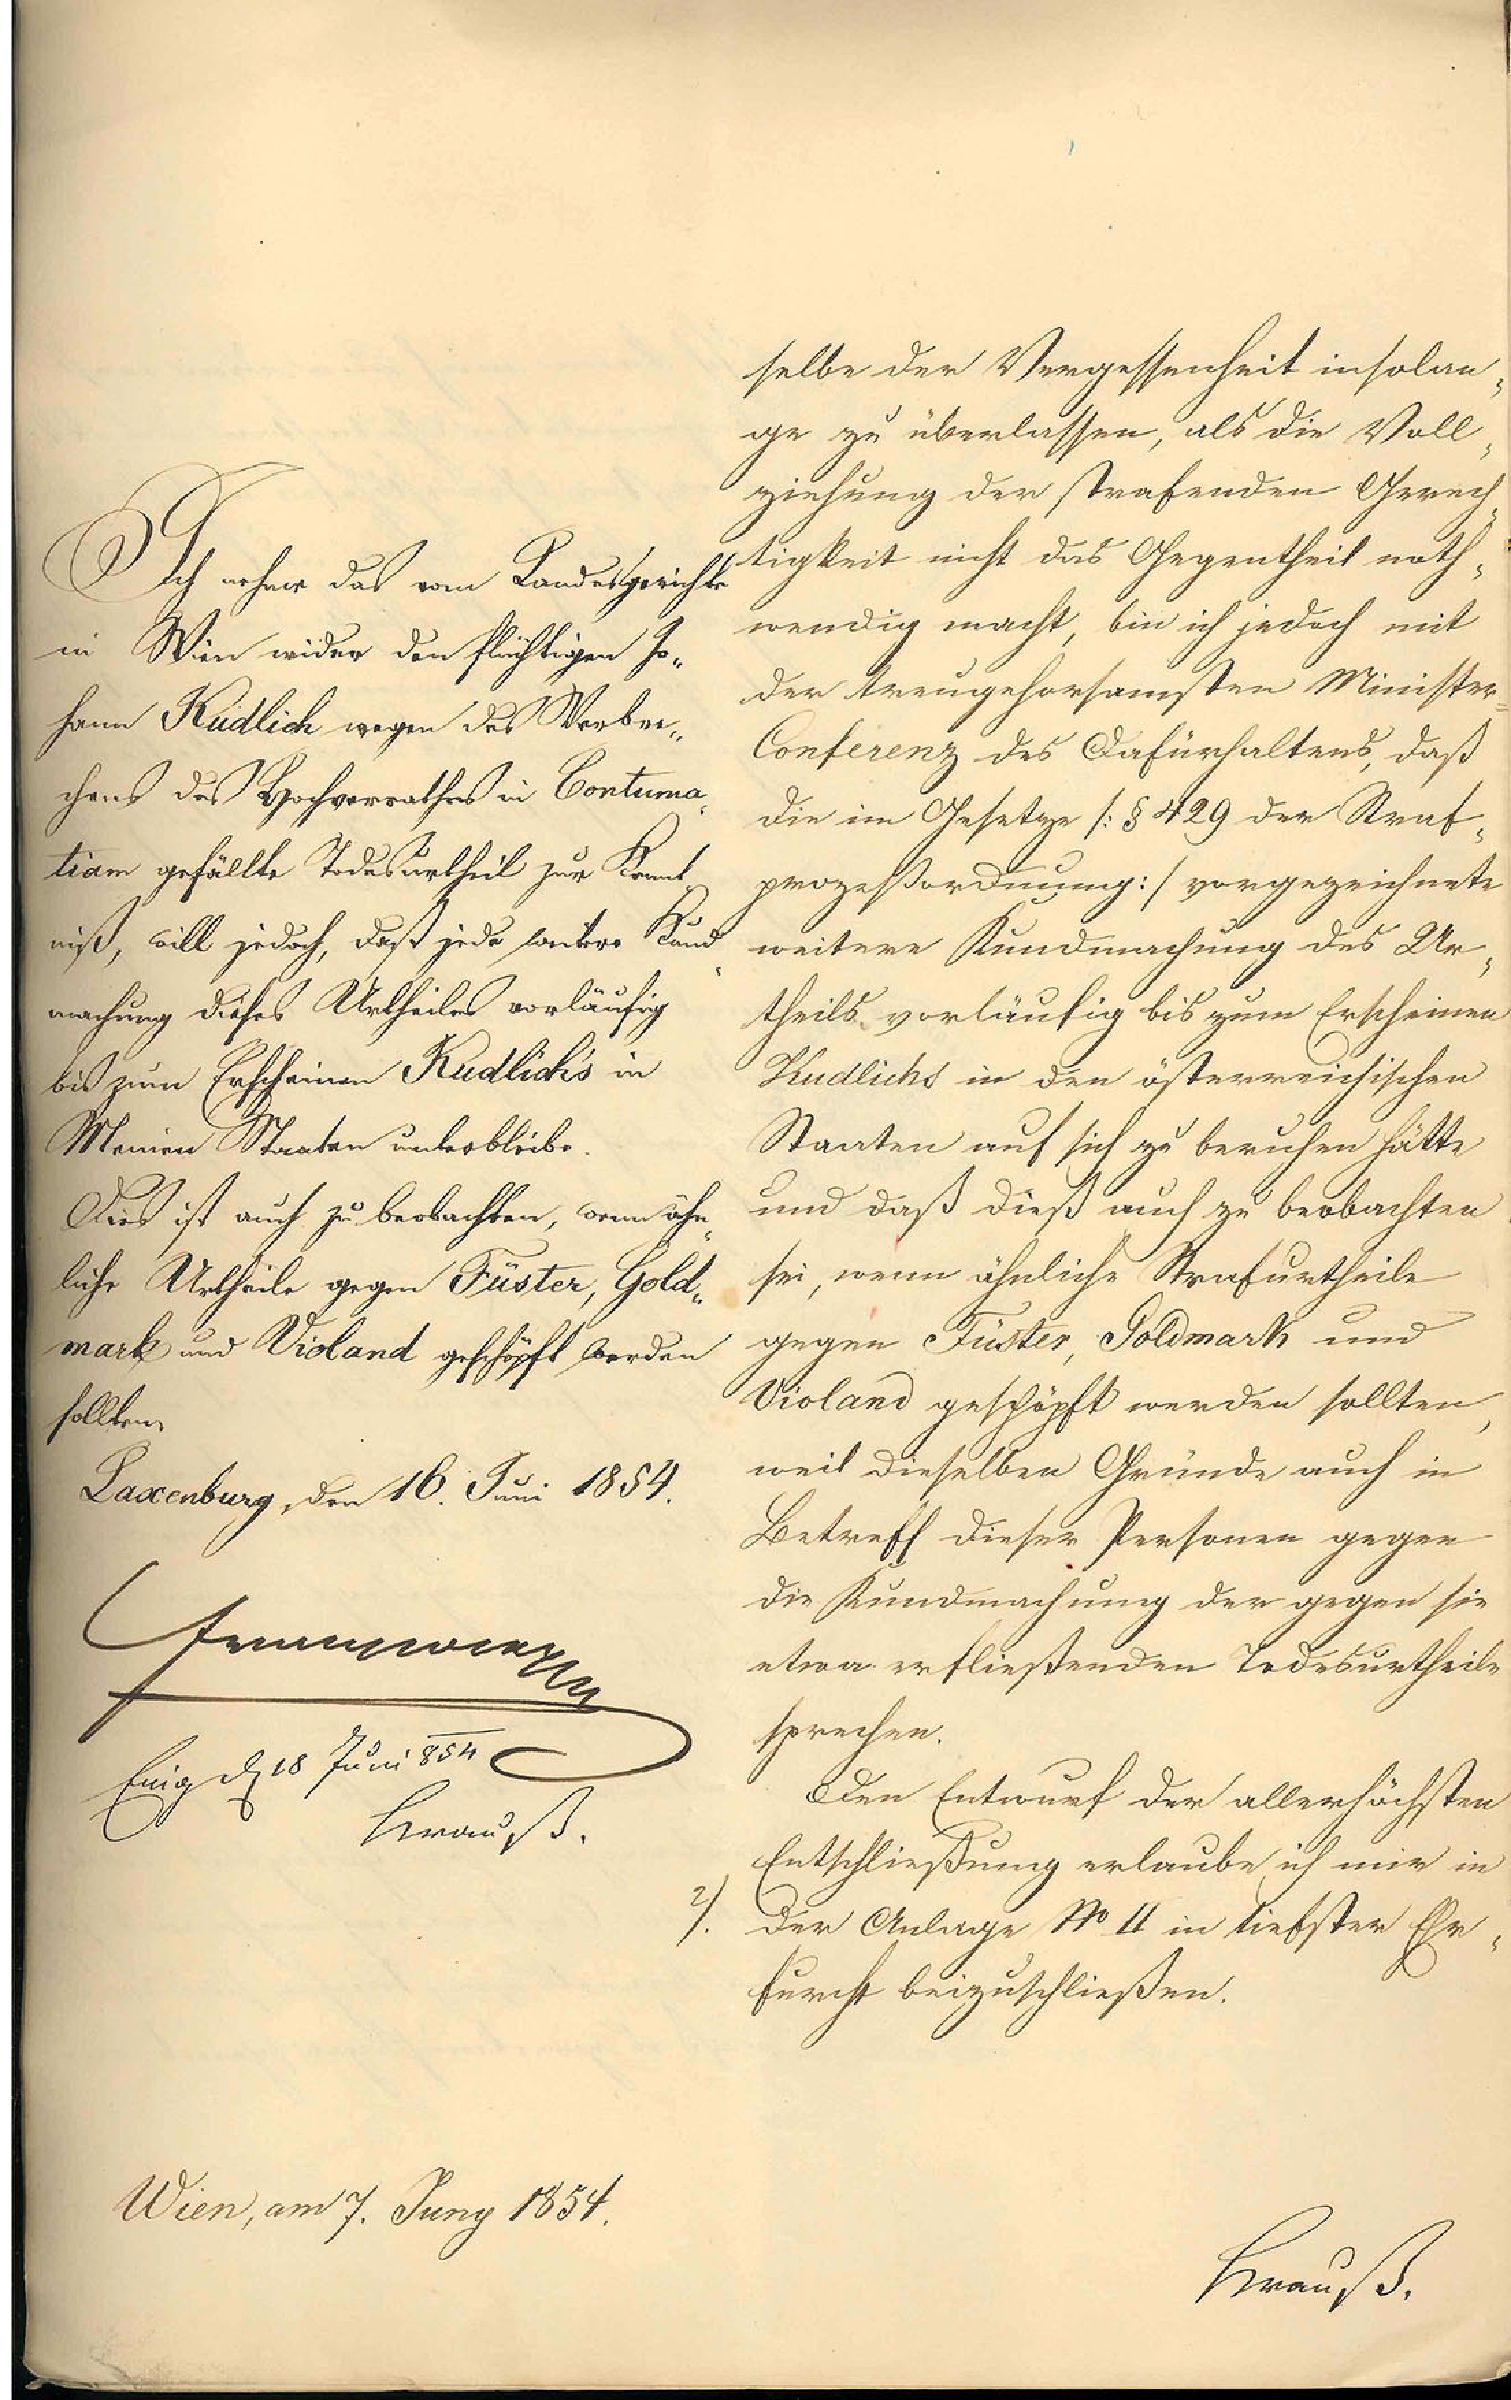 Ich nehme das vom Landesgerichte
in Wien wider den flüchtigen Jo„
hann Kudlich wegen des Verbre„
chens des Hochverrathes in Contuma„
tiam gefällte Todesurtheil zur Kennt„
niß, will jedoch, daß jede weitere Kund„
machung dieses Urtheiles vorläufig
bis zum Erscheinen Kudlich's in
Meinen Staaten unterbleibe.
Dies ist auch zu beobachten, wenn ähn„
liche Urtheile gegen Füster, Gold„
mark und Violand geschöpft werden
sollten.
Laxenburg, den 16. Juni 1854.
Franz Joseph
Eing d 18 Juni 854
Krauß.
Wien, am 7. Juny 1854.
selbe der Vergessenheit insolan„
ge zu überlassen, als die Voll„
ziehung der strafenden Gerech„
tigkeit nicht das Gegentheil noth„
wendig macht, bin ich jedoch mit
der treugehorsamsten Minister=
Conferenz des Dafürhaltens, daß
die im Gesetze /: § 429 der Straf„
prozeßordnung :/ vorgezeichnete
weitere Kundmachung des Ur„
theils vorläufig bis zum Erscheinen
Kudlichs in den österreichischen
Staaten auf sich zu beruhen hätte
und daß dieß auch zu beobachten
sei, wenn ähnliche Strafurtheile
gegen Füster, Goldmark und
Violand geschöpft werden sollten,
weil dieselben Gründe auch in
Betreff dieser Personen gegen
die Kundmachung der gegen sie
etwa erfließenden Todesurtheile
sprechen.
Den Entwurf der allerhöchsten
Entschließung erlaube ich mir in
2/. der Anlage No II in tiefster Ehr„
furcht beizuschließen.
Krauß.